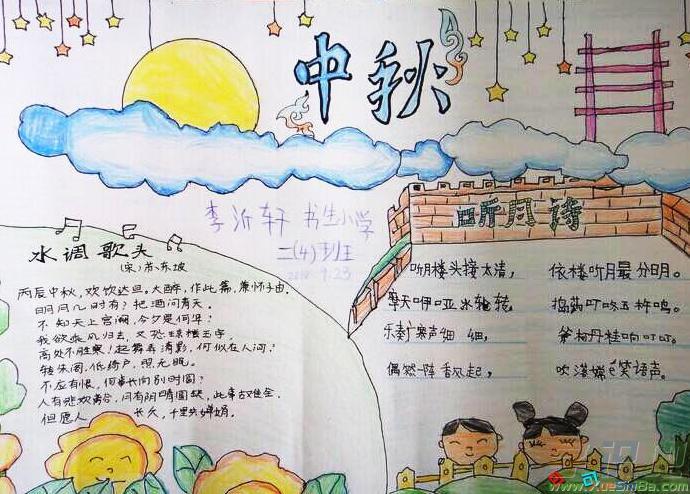 中秋
李沂轩 书生小学
二(4)班
9.23
水调歌头
(宋)苏东坡
丙辰中秋,欢饮达旦。大醉,作此篇,兼怀子由.
明月几时有?把酒问青天。
不知天上宫阙,今夕是何年?
我欲乘风归去,又恐琼楼玉宇,
高处不胜寒!起舞弄清影,何似在人间?
转朱阁,低绮户,照无眠。
不应有恨,何事长向别时圆?
人有悲欢离合,月有阴晴圆缺,此事古难全.
但愿人长久,千里共婵娟.
听月诗
听月楼头接太清,依楼听月最分明。
摩天咿哑冰轮转,捣药叮咚玉杵鸣。
乐奏广寒声细细,斧柯丹桂响叮叮。
偶然一阵香风起,吹落嫦娥笑语声。
www.XueShiBa.com